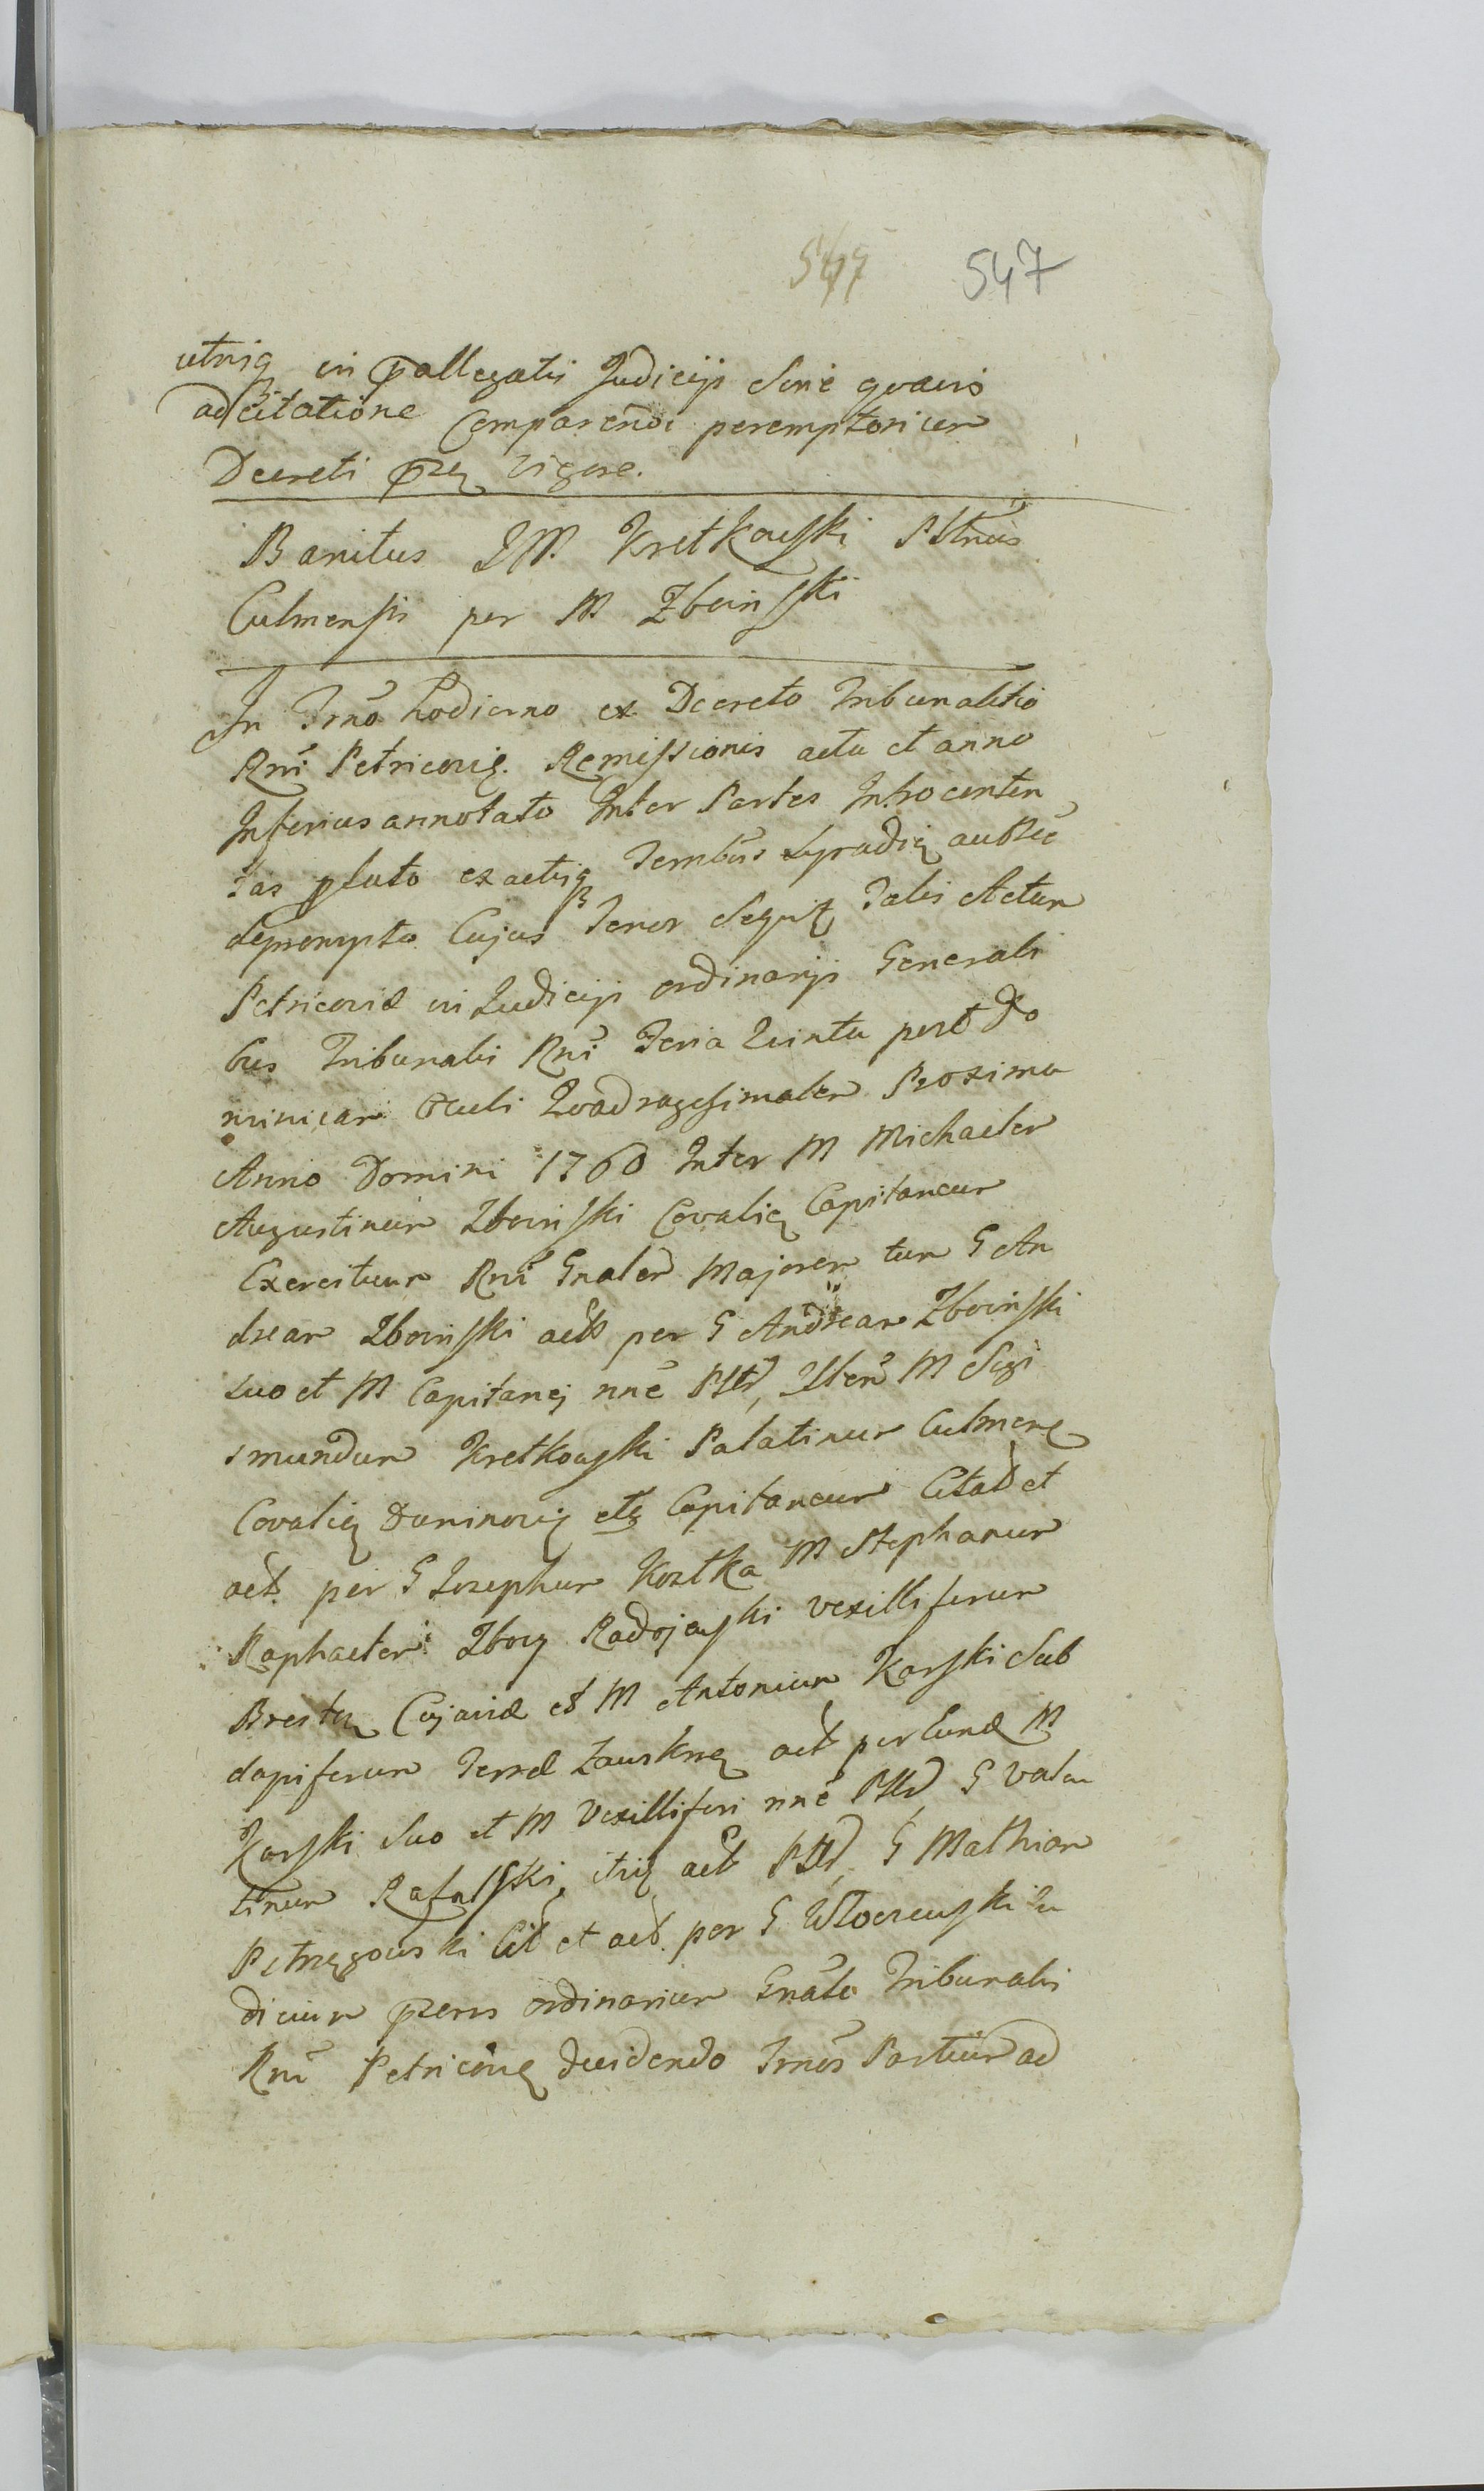 547 547
utrisq in pallegatis Judicijs Sine quavis
adcitatione Comparendi peremptorium
Decreti przñ vigore.
Banitus IM. Kretkowski Pltnus
Culmensis per M Zboinski
In Trnô hodierno ex Decreto Tribunalitio
Rni Petricovien. Remissionis actu et anno
Inferius annotato Inter Partes Introconten
tas plato ex actisq
deprompto Cujus Tenor Sequit Talis Actum
Petricoviæ in Judicijs ordinarijs Generali
bus Tribunalis Rni Feria Quinta post Do
minicam Oculi Quadragesimalem Proxima
Anno Domini 1760 Inter M Michaelem
Augustinum Zboinski Covalien Capitaneum
Exercituum Rni Gnalem Majorem tum G An
dream Zboinski act per G Andream Zboinski
suo et M Capitanej nnê Ptt, M Sigi
smundum Kretkowski Palatinum Culmen
Covalien Duninovien etq Capitaneum Citat et
act. per G Josephum Kostka M Stephanum
Raphaelem Zboy Radojewski vexilliferum
Bresten Cujaviæ et M Antonium Karski Sub
dapiferum Terræ act per Eund M
Karski Suo et M Vexilliferi nnê Ptt, G Valen
tinum Rafalski, act Ptt, G Mathiam
Petrzygowski Cit et act. per G Ju
dicium przens ordinarium Gnale Tribunalis
Rni Petricovien decidendo Trnos Partium ad